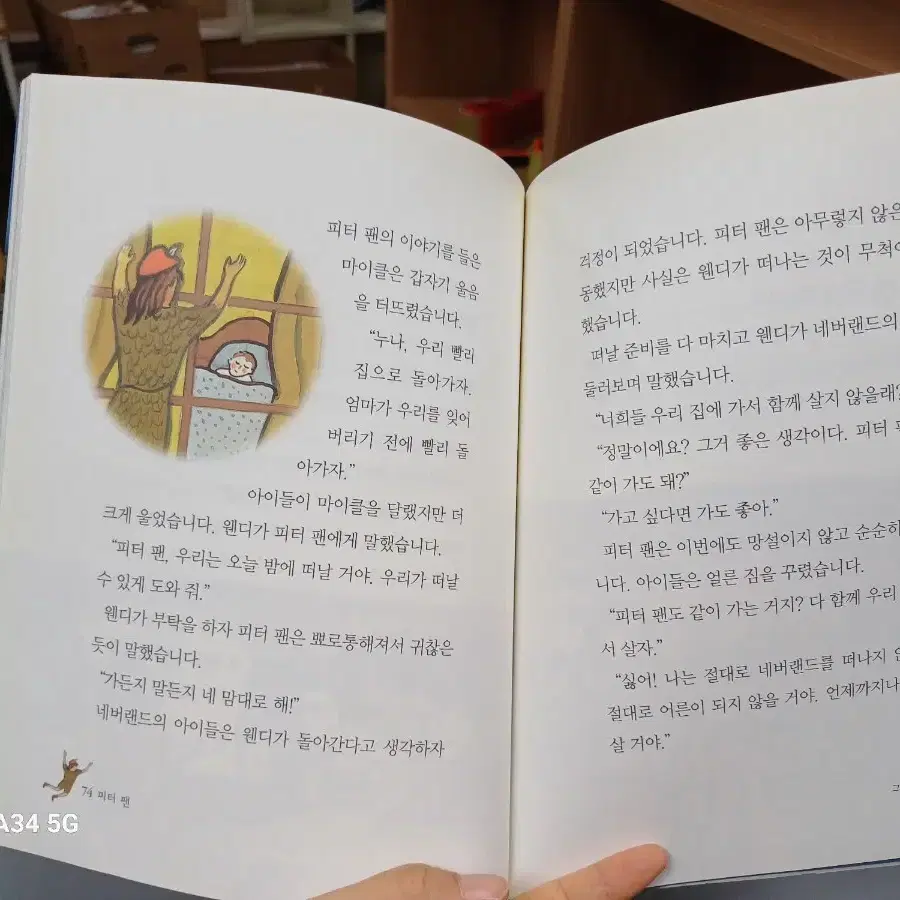 피터 팬의 이야기를 들은
마이클은 갑자기 울음
을 터뜨렸습니다.
“누나, 우리 빨리
집으로 돌아가자.
엄마가 우리를 잊어
버리기 전에 빨리 돌
아가자.”
아이들이 마이클을 달랬지만 더
크게 울었습니다. 웬디가 피터 팬에게 말했습니다.
“피터 팬, 우리는 오늘 밤에 떠날 거야. 우리가 떠날
수 있게 도와 줘.”
웬디가 부탁을 하자 피터 팬은 뾰로통해져서 귀찮은
듯이 말했습니다.
“가든지 말든지 네 맘대로 해!”
네버랜드의 아이들은 웬디가 돌아간다고 생각하자
74 피터 팬
A34 5G
걱정이 되었습니다. 피터 팬은 아무렇지 않은
동했지만 사실은 웬디가 떠나는 것이 무척
했습니다.
떠날 준비를 다 마치고 웬디가 네버랜드의
둘러보며 말했습니다.
“너희들 우리 집에 가서 함께 살지 않을래?
“정말이에요? 그거 좋은 생각이다. 피터
같이 가도 돼?”
“가고 싶다면 가도 좋아.”
피터 팬은 이번에도 망설이지 않고 순순하
니다. 아이들은 얼른 짐을 꾸렸습니다.
“피터 팬도 같이 가는 거지? 다 함께 우리
서 살자.”
“싫어! 나는 절대로 네버랜드를 떠나지
절대로 어른이 되지 않을 거야. 언제까지나
살 거야.”